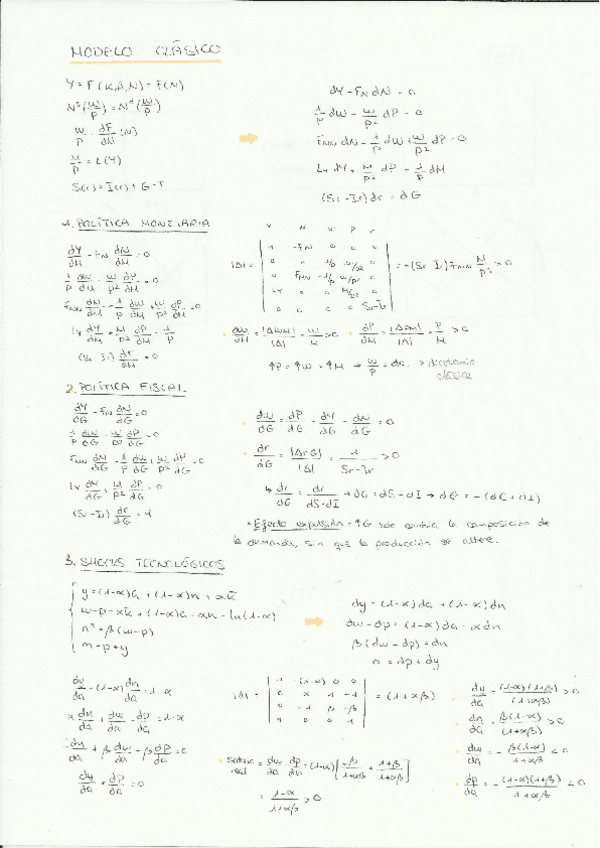 MODELO CLÁSICO
Y = F(K,A,N) = F(N)
N^s(w/P) = N^d(w/P)
w/P = dF/dN (N)
M/P = L(Y)
S(r) = I(r) + G - T
dY - F_N dN = 0
1/P dw - w/P² dP = 0
F_NN dN - 1/P dw + w/P² dP = 0
L_Y dY + M/P² dP = 1/P dM
(Sr - Ir) dr = dG
1. POLÍTICA MONETARIA
dY/dM - F_N dN/dM = 0
1/P dw/dM - w/P² dP/dM = 0
F_NN dN/dM - 1/P dw/dM + w/P² dP/dM = 0
L_Y dY/dM + M/P² dP/dM = 1/P
(Sr - Ir) dr/dM = 0
Y N w P r
|Δ| =
1 -F_N 0 0 0
0 0 1/P -w/P² 0
0 F_NN -1/P w/P² 0
L_Y 0 0 M/P² 0
0 0 0 0 Sr-Ir
= -(Sr - Ir) F_NN M/P³ > 0
dw/dM = |ΔwM|/|Δ| = w/M > 0
dP/dM = |ΔPM|/|Δ| = P/M > 0
↑P = ↑w = ↑M → w/P = cte. → dicotomía
clásica
2. POLÍTICA FISCAL
dY/dG - F_N dN/dG = 0
1/P dw/dG - w/P² dP/dG = 0
F_NN dN/dG - 1/P dw/dG + w/P² dP/dG = 0
L_Y dY/dG + M/P² dP/dG = 0
(Sr - Ir) dr/dG = 1
dw/dG = dP/dG = dY/dG = dN/dG = 0
dr/dG = |ΔrG|/|Δ| = 1/(Sr - Ir) > 0
↳ dr/dG = dr/(dS - dI) → dG = dS - dI → dG = -(dC + dI)
* Efecto expulsión = ↑G solo cambia la composición de
la demanda, sin que la producción se altere.
3. SHOCKS TECNOLÓGICOS
y = (1-α)a + (1-α)n + αk̄
w - p = αk̄ + (1-α)a - αn - ln(1-α)
n^s = β(w-p)
m = p + y
dy = (1-α)da + (1-α)dn
dw - dp = (1-α)da - αdn
β(dw - dp) = dn
0 = dp + dy
dy/da - (1-α) dn/da = 1-α
α dn/da + dw/da - dp/da = 1-α
-dn/da + β dw/da - β dp/da = 0
dy/da + dp/da = 0
|Δ| =
1 -(1-α) 0 0
0 α 1 -1
0 -1 β -β
1 0 0 1
= (1+αβ)
dy/da = (1-α)(1+β)/(1+αβ) > 0
dn/da = β(1-α)/(1+αβ) > 0
dw/da = -β(1-α)/(1+αβ) < 0
dp/da = -(1-α)(1+β)/(1+αβ) < 0
salario real = dw/da - dp/da = (1-α)[-β/(1+αβ) + (1+β)/(1+αβ)]
= (1-α)/(1+αβ) > 0